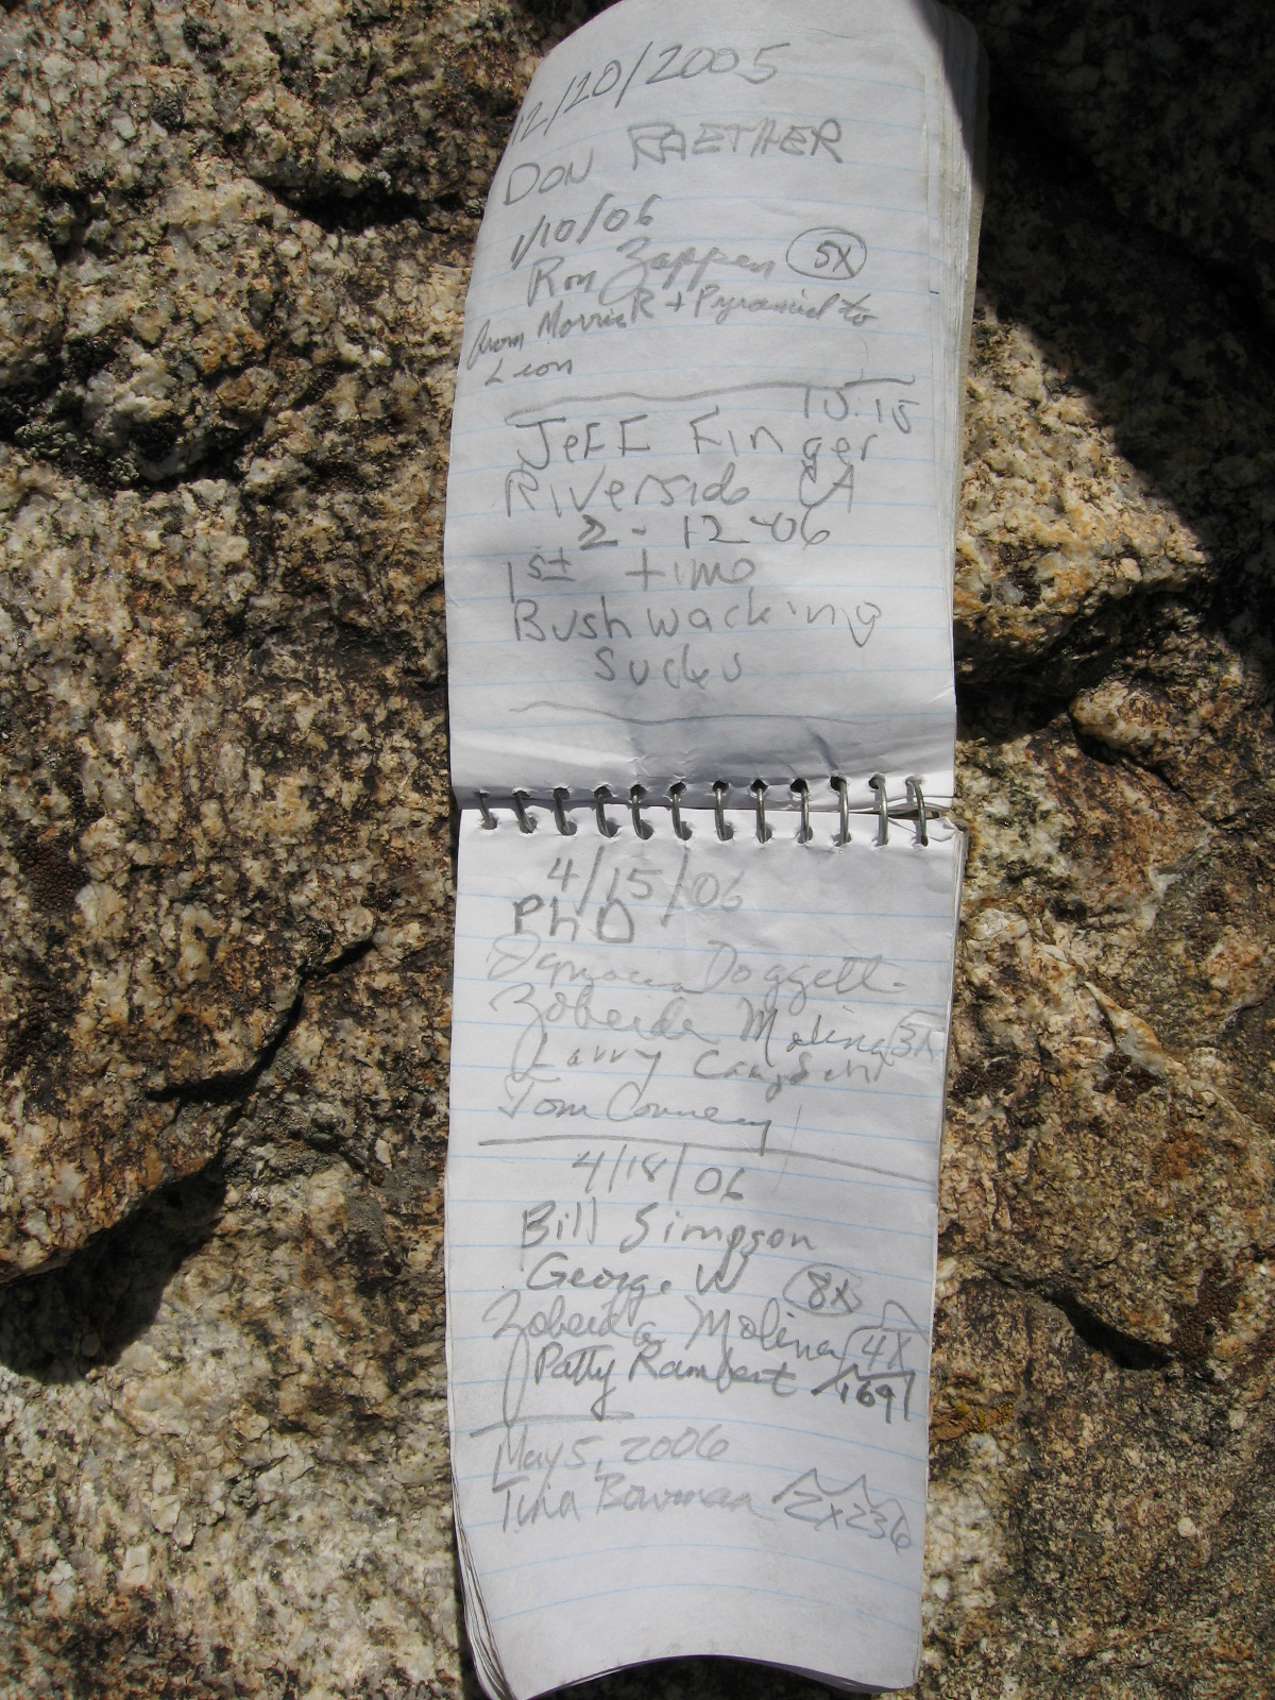 12/20/2005
DON RAETHER
1/10/06
Ron Zappen 5X
from Morris R + Pyramid to
Leon
10:15
Jeff Finger
Riverside CA
2-12-06
1st time
Bushwacking
sucks
4/15/06
PhD
Doggett
Zobeida Molina 3X
Larry
Tom
4/18/06
Bill Simpson
George W 8X
Zobeida Molina 4X
Patty Rambert 169
May 5, 2006
Tina Bowman 2X 236